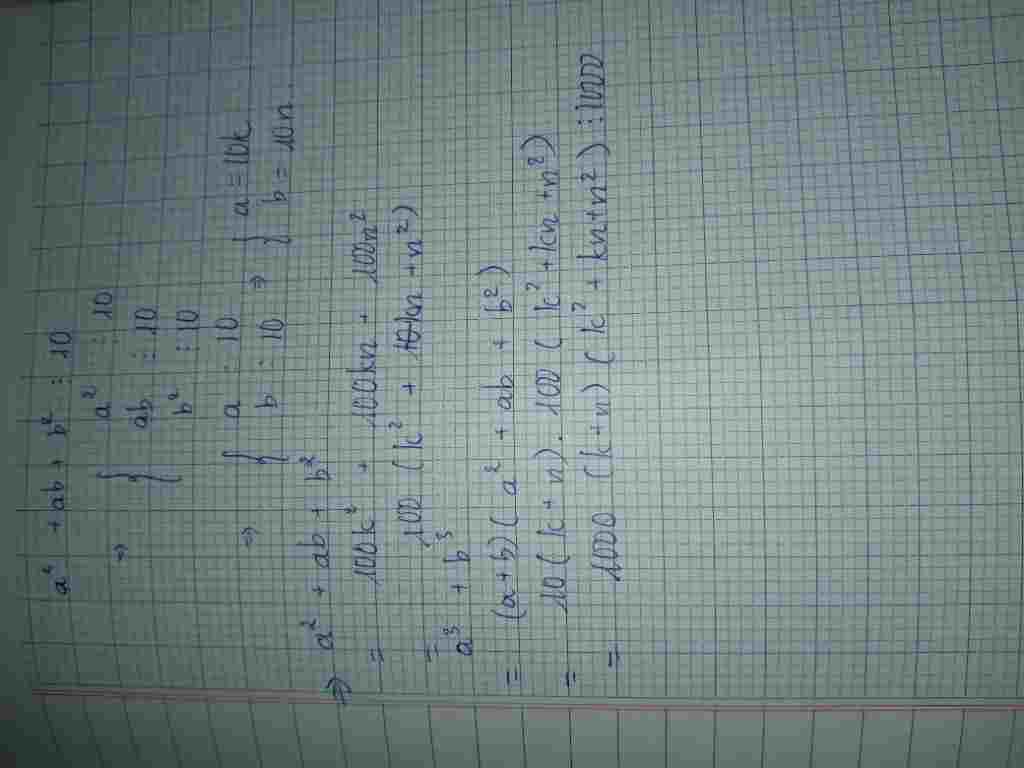 a² + ab + b² ⋮ 10
⇒ { a² ⋮ 10
ab ⋮ 10
b² ⋮ 10
⇒ { a ⋮ 10 ⇒ { a = 10k
b ⋮ 10 b = 10n
⇒ a² + ab + b²
= 100k² + 100kn + 100n²
= 100 (k² + kn + n²)
a³ + b³
= (a+b)(a² + ab + b²)
= 10(k+n).100(k²+kn+n²)
= 1000 (k+n)(k²+kn+n²) ⋮ 1000